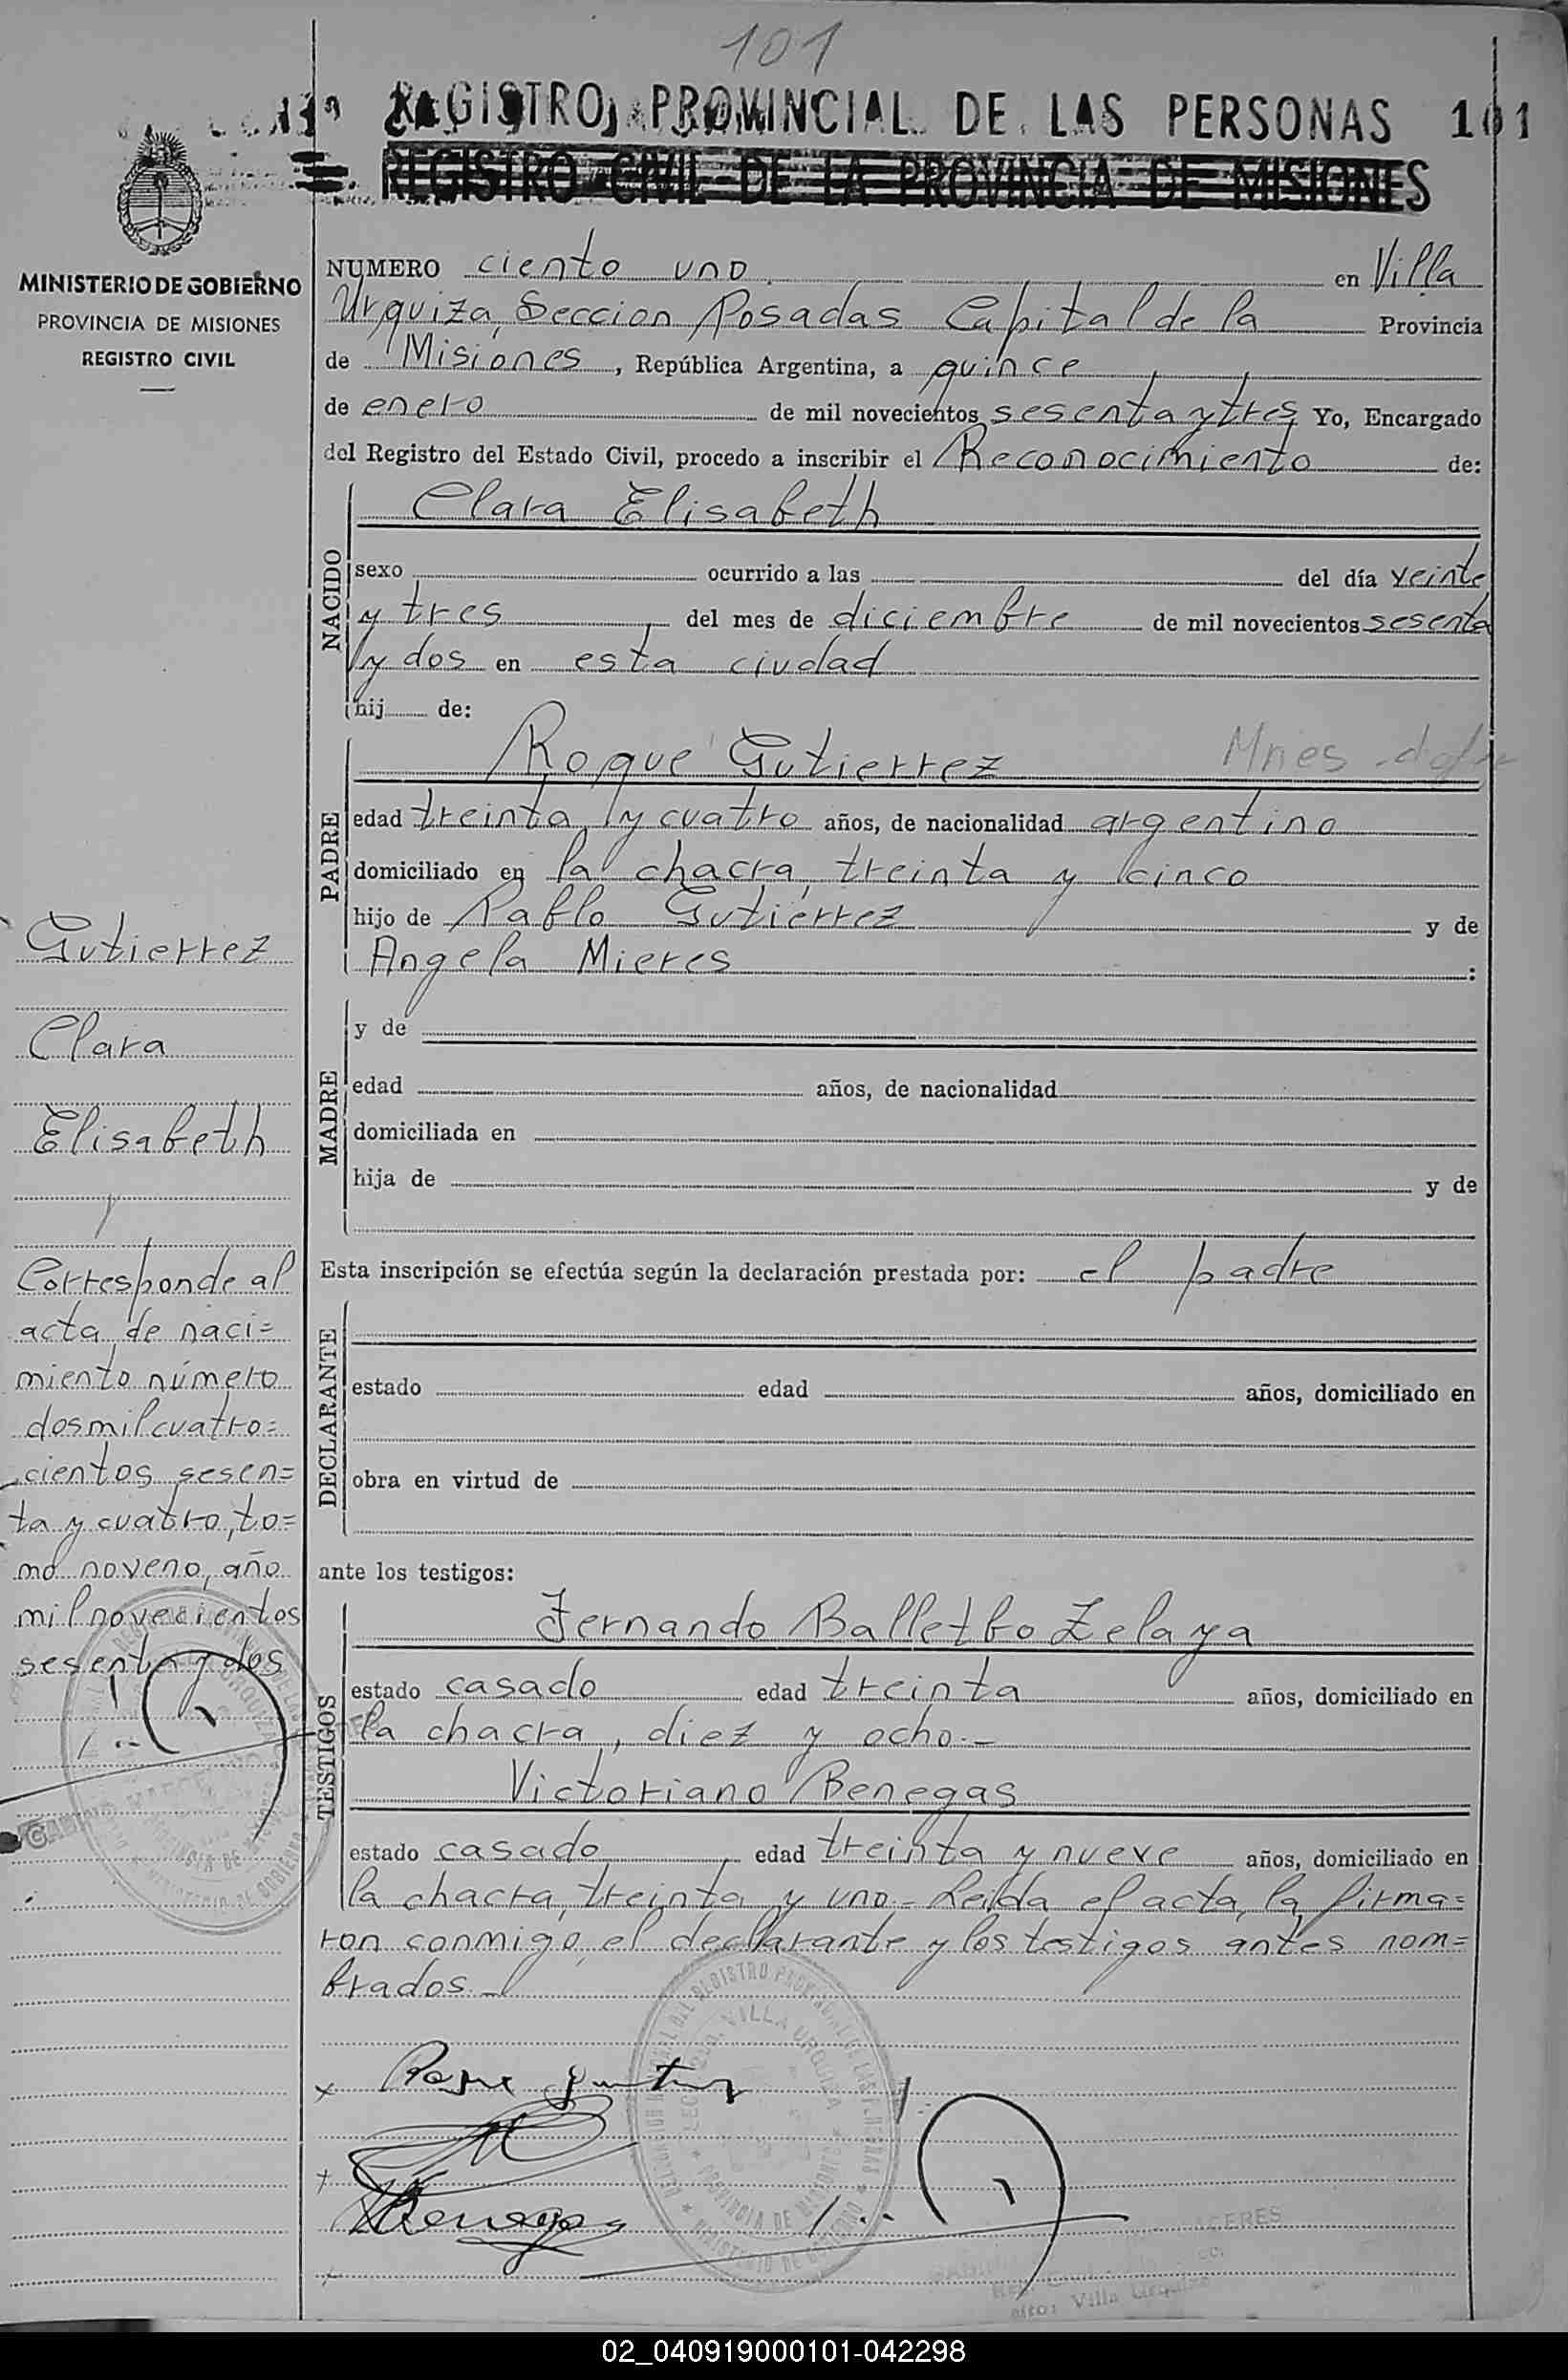 101
REGISTRO PROVINCIAL DE LAS PERSONAS 101
REGISTRO CIVIL DE LA PROVINCIA DE MISIONES
MINISTERIO DE GOBIERNO
PROVINCIA DE MISIONES
REGISTRO CIVIL
NUMERO ciento uno en Villa
Urquiza, Seccion Posadas Capital de la Provincia
de Misiones, República Argentina, a quince
de enero de mil novecientos sesenta y tres Yo, Encargado
del Registro del Estado Civil, procedo a inscribir el Reconocimiento de:
NACIDO
Clara Elisabeth
sexo ocurrido a las del día veinte
y tres del mes de diciembre de mil novecientos sesenta
y dos en esta ciudad
hij de:
PADRE
Roque Gutierrez Mnes.
edad treinta y cuatro años, de nacionalidad argentino
domiciliado en la chacra, treinta y cinco
hijo de Pablo Gutiérrez y de
Angela Mieres :
MADRE
y de
edad años, de nacionalidad
domiciliada en
hija de y de
Esta inscripción se efectúa según la declaración prestada por: el padre
DECLARANTE
estado edad años, domiciliado en
obra en virtud de
ante los testigos:
TESTIGOS
Fernando Balletbo Zelaya
estado casado edad treinta años, domiciliado en
la chacra, diez y ocho.-
Victoriano Benegas
estado casado edad treinta y nueve años, domiciliado en
la chacra, treinta y uno.- Leída el acta, la firma=
ron conmigo, el declarante y los testigos antes nom=
brados.-
Gutierrez
Clara
Elisabeth
Corresponde al
acta de naci=
miento número
dosmilcuatro=
cientos sesen=
ta y cuatro, to=
mo noveno, año
mil novecientos
sesenta y dos
Roque
Benegas
VILLA URQUIZA
PROVINCIA DE MISIONES
MINISTERIO DE GOBIERNO
Villa Urquiza
02_040919000101-042298